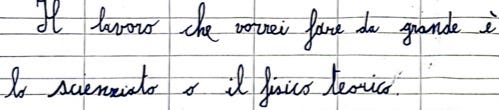 Il lavoro che vorrei fare da grande è
lo scienziato o il fisico teorico.